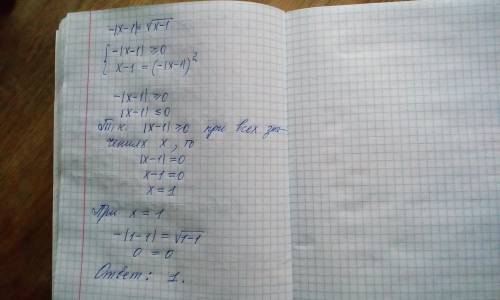 -|x-1|=√x-1
{-|x-1| ≥0
x-1=(-|x-1|)²
-|x-1|≥0
|x-1|≤0
Т.к. |x-1|≥0 при всех зна-
чениях x, то
|x-1|=0
x-1=0
x=1
При x=1
-|1-1|=√1-1
0=0
Ответ: 1.